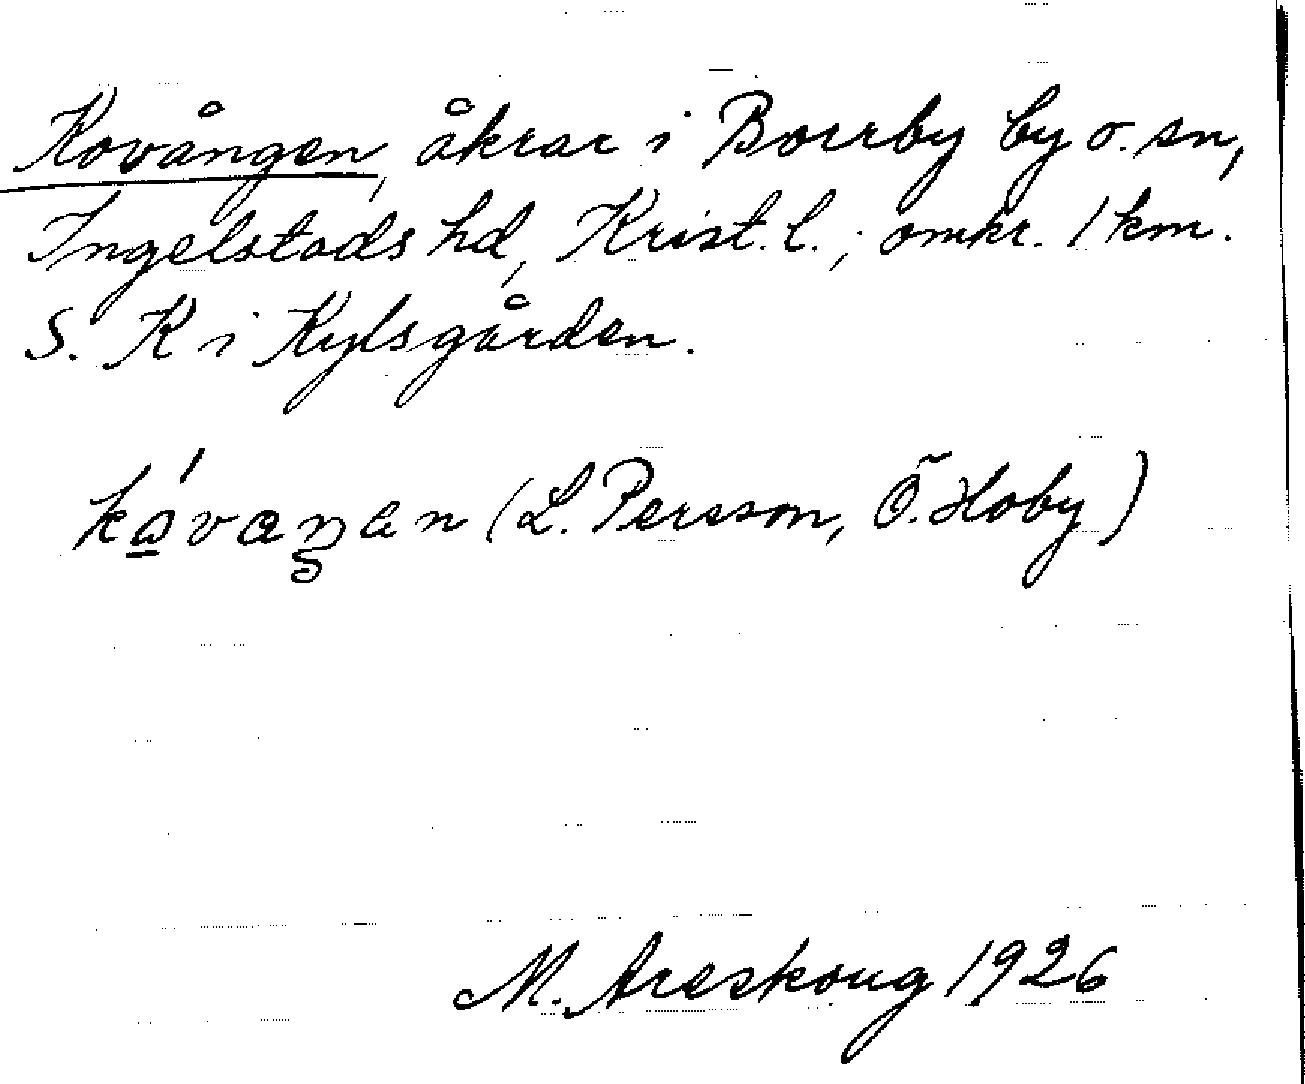 Kovången, åkrar i Borrby by o. sn,
Ingelstads hd, Krist. l.; omkr. 1 km.
S. K i Kylsgården.
(L. Persson, Ö. Hoby)
M. Areskoug 1926